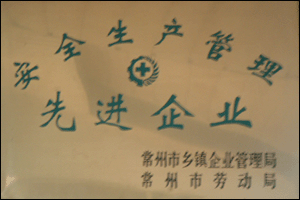 安全生产管理
先进企业
常州市乡镇企业管理局
常州市劳动局